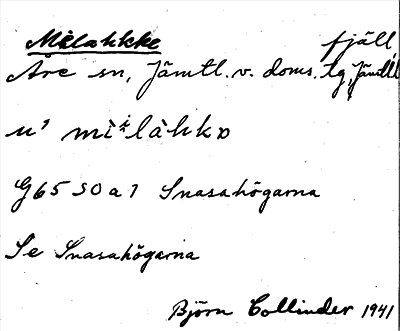 Målahkke fjäll,
Åre sn, Jämtl. v. doms. tg, Jämtl l
G65 S0 a 1 Snasahögarna
Se Snasahögarna
Björn Collinder 1941